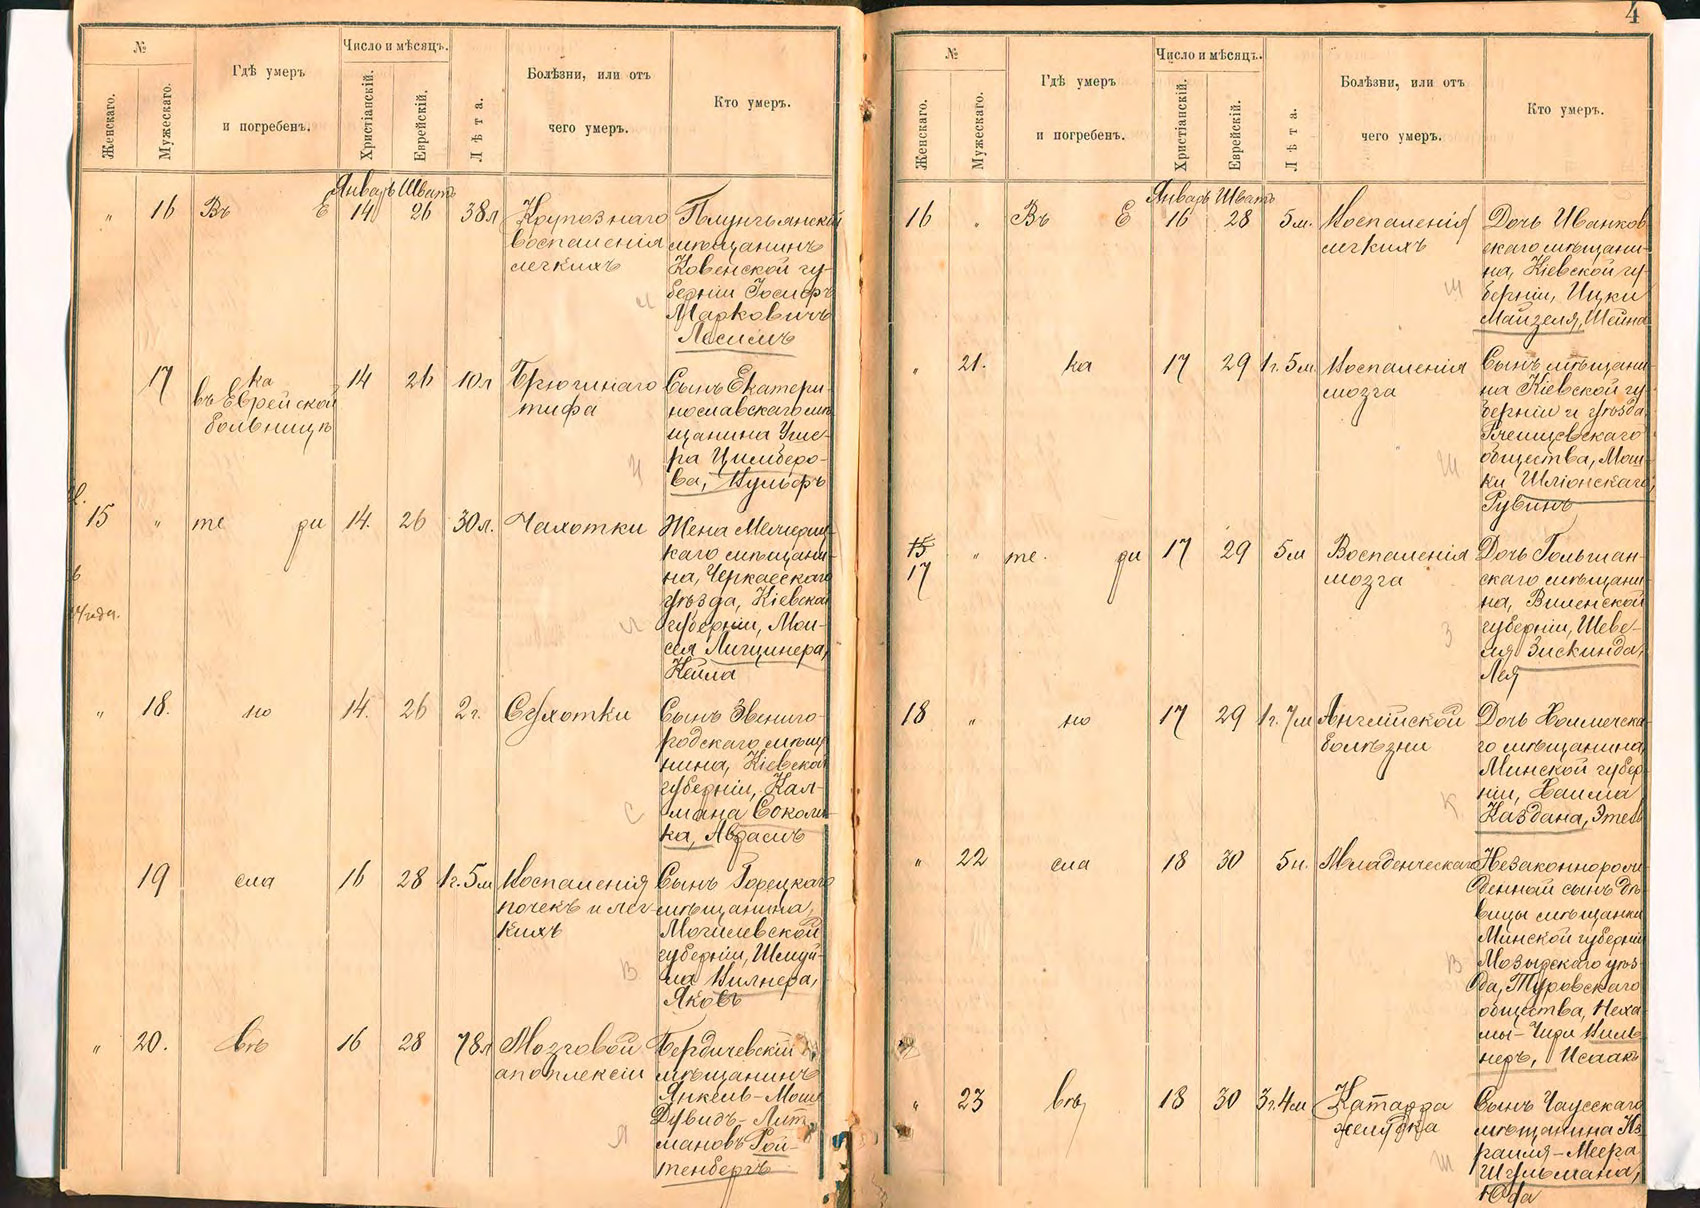 4
№
Женскаго.
Мужескаго.
Гдѣ умеръ
и погребенъ.
Число и мѣсяцъ.
Христіанскій.
Еврейскій.
Лѣта.
Болѣзни, или отъ
чего умеръ.
Кто умеръ.
Январь Шватъ
" 16 Въ Е 14 26 38 л Крупознаго
воспаленія
легкихъ
мѣщанинъ
Ковенской гу-
берніи Іосифъ
Марковичъ
17 ка 14 26 10 л Брюшнаго
въ Еврейской
больницѣ
тифа
Сынъ Екатери-
нославскаго мѣ-
щанина
ра Цимберо-
ва, Вульфъ
15 " те ди 14. 26 30 л. Чахотки
Жена
каго мѣщани-
на, Черкасскаго
уѣзда, Кіевской
губерніи, Мои-
сея Лищинера,
Кейла
" 18. но 14. 26 2 г. Сухотки
Сынъ Звениго-
родскаго мѣща-
нина, Кіевской
губерніи, Кал-
мана Соколи-
ка, Абрамъ
19 сла 16 28 1 г. 5 м Воспаленія
почекъ и лег-
кихъ
Сынъ Горецкаго
мѣщанина,
Могилевской
губерніи, Шмуй-
ла Вилнера,
Яковъ
" 20. вѣ 16 28 78 л Мозговой
апоплексіи
Бердичевскій
мѣщанинъ
Янкель-Мош
Дувидъ-Лит
мановъ Рой-
тенбергъ
№
Женскаго.
Мужескаго.
Гдѣ умеръ
и погребенъ.
Число и мѣсяцъ.
Христіанскій.
Еврейскій.
Лѣта.
Болѣзни, или отъ
чего умеръ.
Кто умеръ.
Январь Шватъ
16 " Въ Е 16 28 5 м. Воспаленія
легкихъ
Дочь Иванков-
скаго мѣщани-
на, Кіевской гу-
берніи, Ицки
Майзеля, Шейна
" 21. ка 17 29 1 г. 5 м Воспаленія
мозга
Сынъ мѣщани-
на Кіевской гу-
берніи и уѣзда
общества, Мош-
ки Шліонскаго,
Рубинъ
15
17 " те. ди 17 29 5 м Воспаленія
мозга
Дочь Гольшан-
скаго мѣщани-
на, Виленской
губерніи, Шеве-
ля Зискинда,
Лея
18 " но 17 29 1 г. 7 м Англійской
болѣзни
Дочь Холмечска-
го мѣщанина,
Минской губер-
ніи, Хаима
Каздана, Этель
" 22 сла 18 30 5 н. Младенческаго
Незаконнорож-
денный сынъ дѣ-
вицы мѣщанки
Минской губерніи
Мозырскаго уѣз-
да, Туровскаго
общества, Неха-
мы-Чиди Виль-
неръ, Исаакъ
" 23 вѣ, 18 30 3 г. 4 м Катарра
желудка
Сынъ Чаусскаго
мѣщанина Из-
раиля-Меера
Шульмана,
Юда